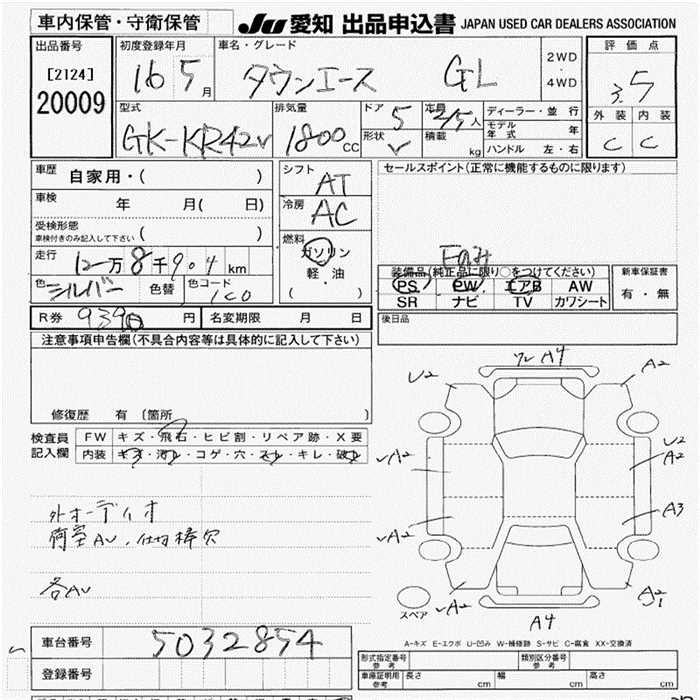 車内保管・守衛保管
JU 愛知 出品申込書 JAPAN USED CAR DEALERS ASSOCIATION
出品番号 初度登録年月 車名・グレード 評価点
[2124] 16 5月 タウンエース GL 2WD・4WD 3.5
20009
型式 排気量 ドア 5 定員 2/5人 ディーラー・並行 外装 内装
GK-KR42V 1800cc 形状 V 積載 kg モデル年式 年 C C
ハンドル 左・右
車歴 自家用・( ) シフト AT セールスポイント(正常に機能するものに限ります)
車検 年 月( 日) 冷房 AC
受検形態
車検付きのみ記入して下さい ( ) 燃料
走行 12万8千904km ガソリン
軽・油
( )
色 シルバー 色替 色コード 1C0
装備品(純正品に限り○をつけてください) 新車保証書
PS PW エアB AW 有・無
SR ナビ TV カワシート
R券 9390円 名変期限 月 日 後日品
注意事項申告欄(不具合内容等は具体的に記入して下さい)
修復歴 有 [箇所 ]
検査員 FW キズ・飛石・ヒビ割・リペア跡・X要
記入欄 内装 キズ・汚レ・コゲ・穴・スレ・キレ・破レ
外オーディオ
荷室AU、仕切棒欠
各AU
ワレ A4
U2 A2
A2 U2
A2
A2 A3
A2 A2
スペア A4
A-キズ E-エクボ U-凹み W-補修跡 S-サビ C-腐食 XX-交換済
車台番号 5032854
登録番号
形式指定番号 参考 類別区分番号 参考
車庫証明用 参考 長さ cm 幅 cm 高さ cm